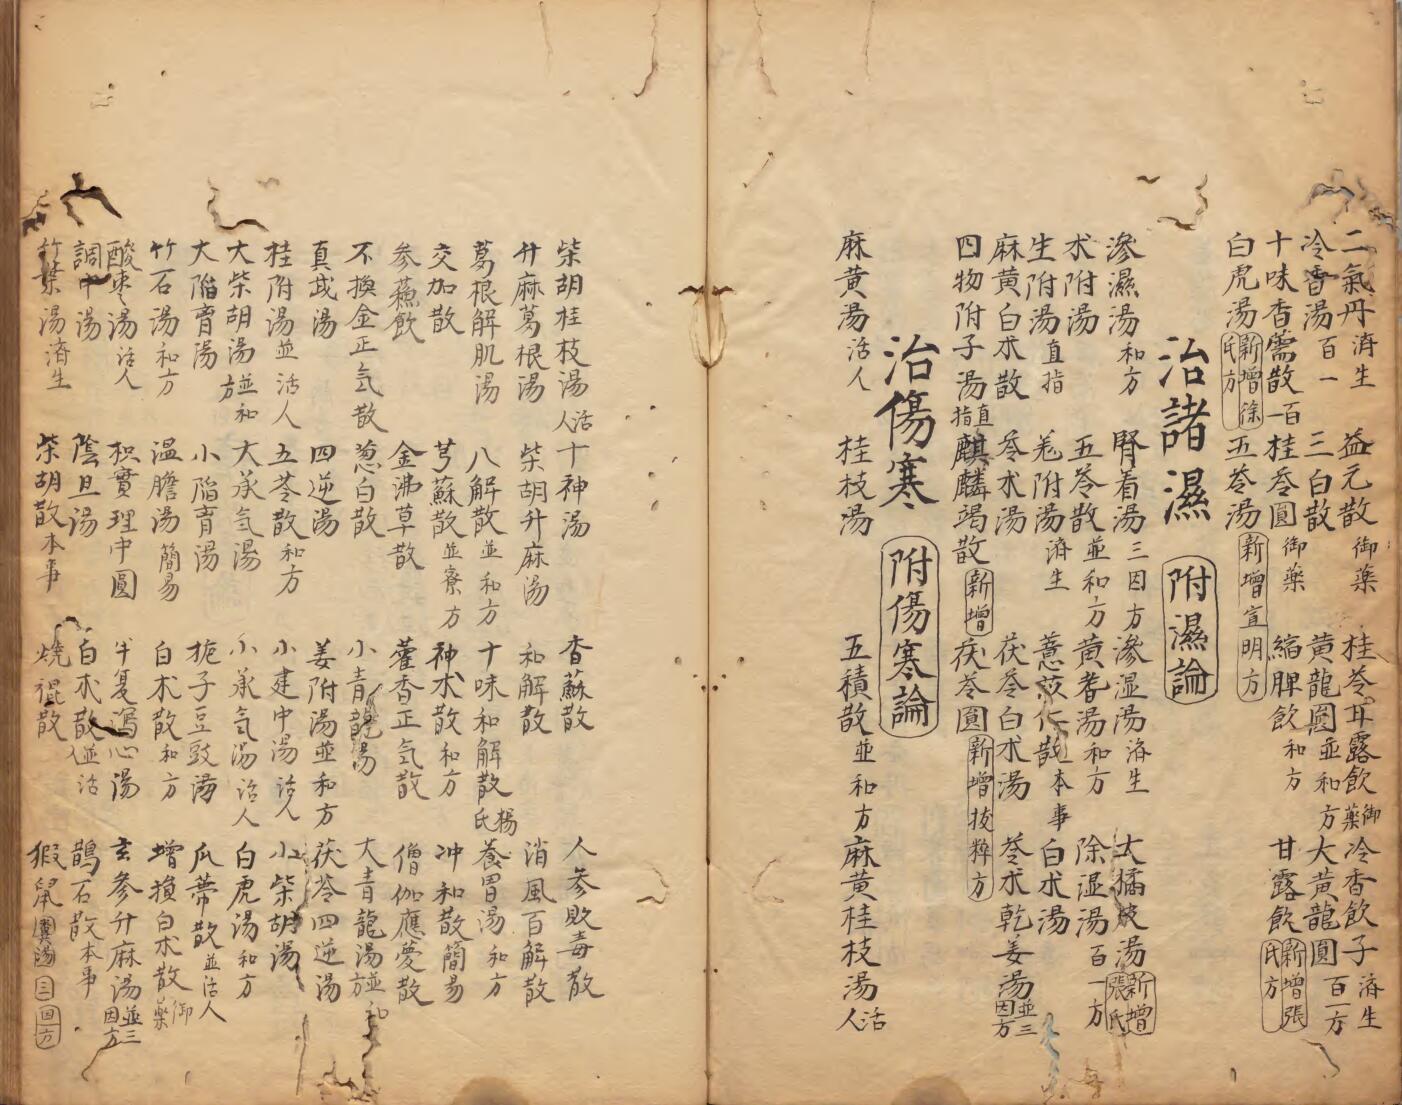 二氣丹濟生 益元散御藥 桂苓甘露飲御藥 冷香飲子濟生
冷香湯百一 三白散 黃龍圓並和方 大黃龍圓百一方
十味香薷散百一 桂苓圓御藥 縮脾飲和方 甘露飲新增張氏方
白虎湯新增徐氏方 五苓湯新增宣明方
治諸濕 附濕論
滲濕湯和方 腎着湯三因方 滲湿湯濟生 大橘皮湯新增張氏
朮附湯 五苓散並和方 黃耆湯和方 除湿湯百一方
生附湯直指 羌附湯濟生 薏苡仁散本事 白朮湯
麻黃白朮散 苓朮湯 茯苓白朮湯 苓朮乾姜湯並三因方
四物附子湯直指 麒麟竭散新增 茯苓圓新增拔粹方
治傷寒 附傷寒論
麻黃湯活人 桂枝湯 五積散並和方 麻黃桂枝湯活人
柴胡桂枝湯活人 十神湯 香蘇散 人參敗毒散
升麻葛根湯 柴胡升麻湯 和解散 消風百解散
葛根解肌湯 八解散並和方 十味和解散楊氏 養胃湯和方
交加散 芎蘇散並寮方 神朮散和方 冲和散簡易
參蘓飲 金沸草散 藿香正気散 僧伽應夢散
不換金正気散 葱白散 小青龍湯 大青龍湯並和方
真武湯 四逆湯 姜附湯並和方 茯苓四逆湯
桂附湯並活人 五苓散和方 小建中湯活人 小柴胡湯
大柴胡湯並和方 大承气湯 小承气湯活人 白虎湯和方
大陷胷湯 小陷胷湯 梔子豆豉湯 瓜蒂散並活人
竹石湯和方 温膽湯簡易 白朮散和方 增損白朮散御藥
酸棗湯活人 枳實理中圓 半夏瀉心湯 玄參升麻湯並三因方
調中湯 陰旦湯 白朮散並活人 鵲石散本事
竹葉湯濟生 柴胡散本事 燒裩散 猳鼠糞湯三因方